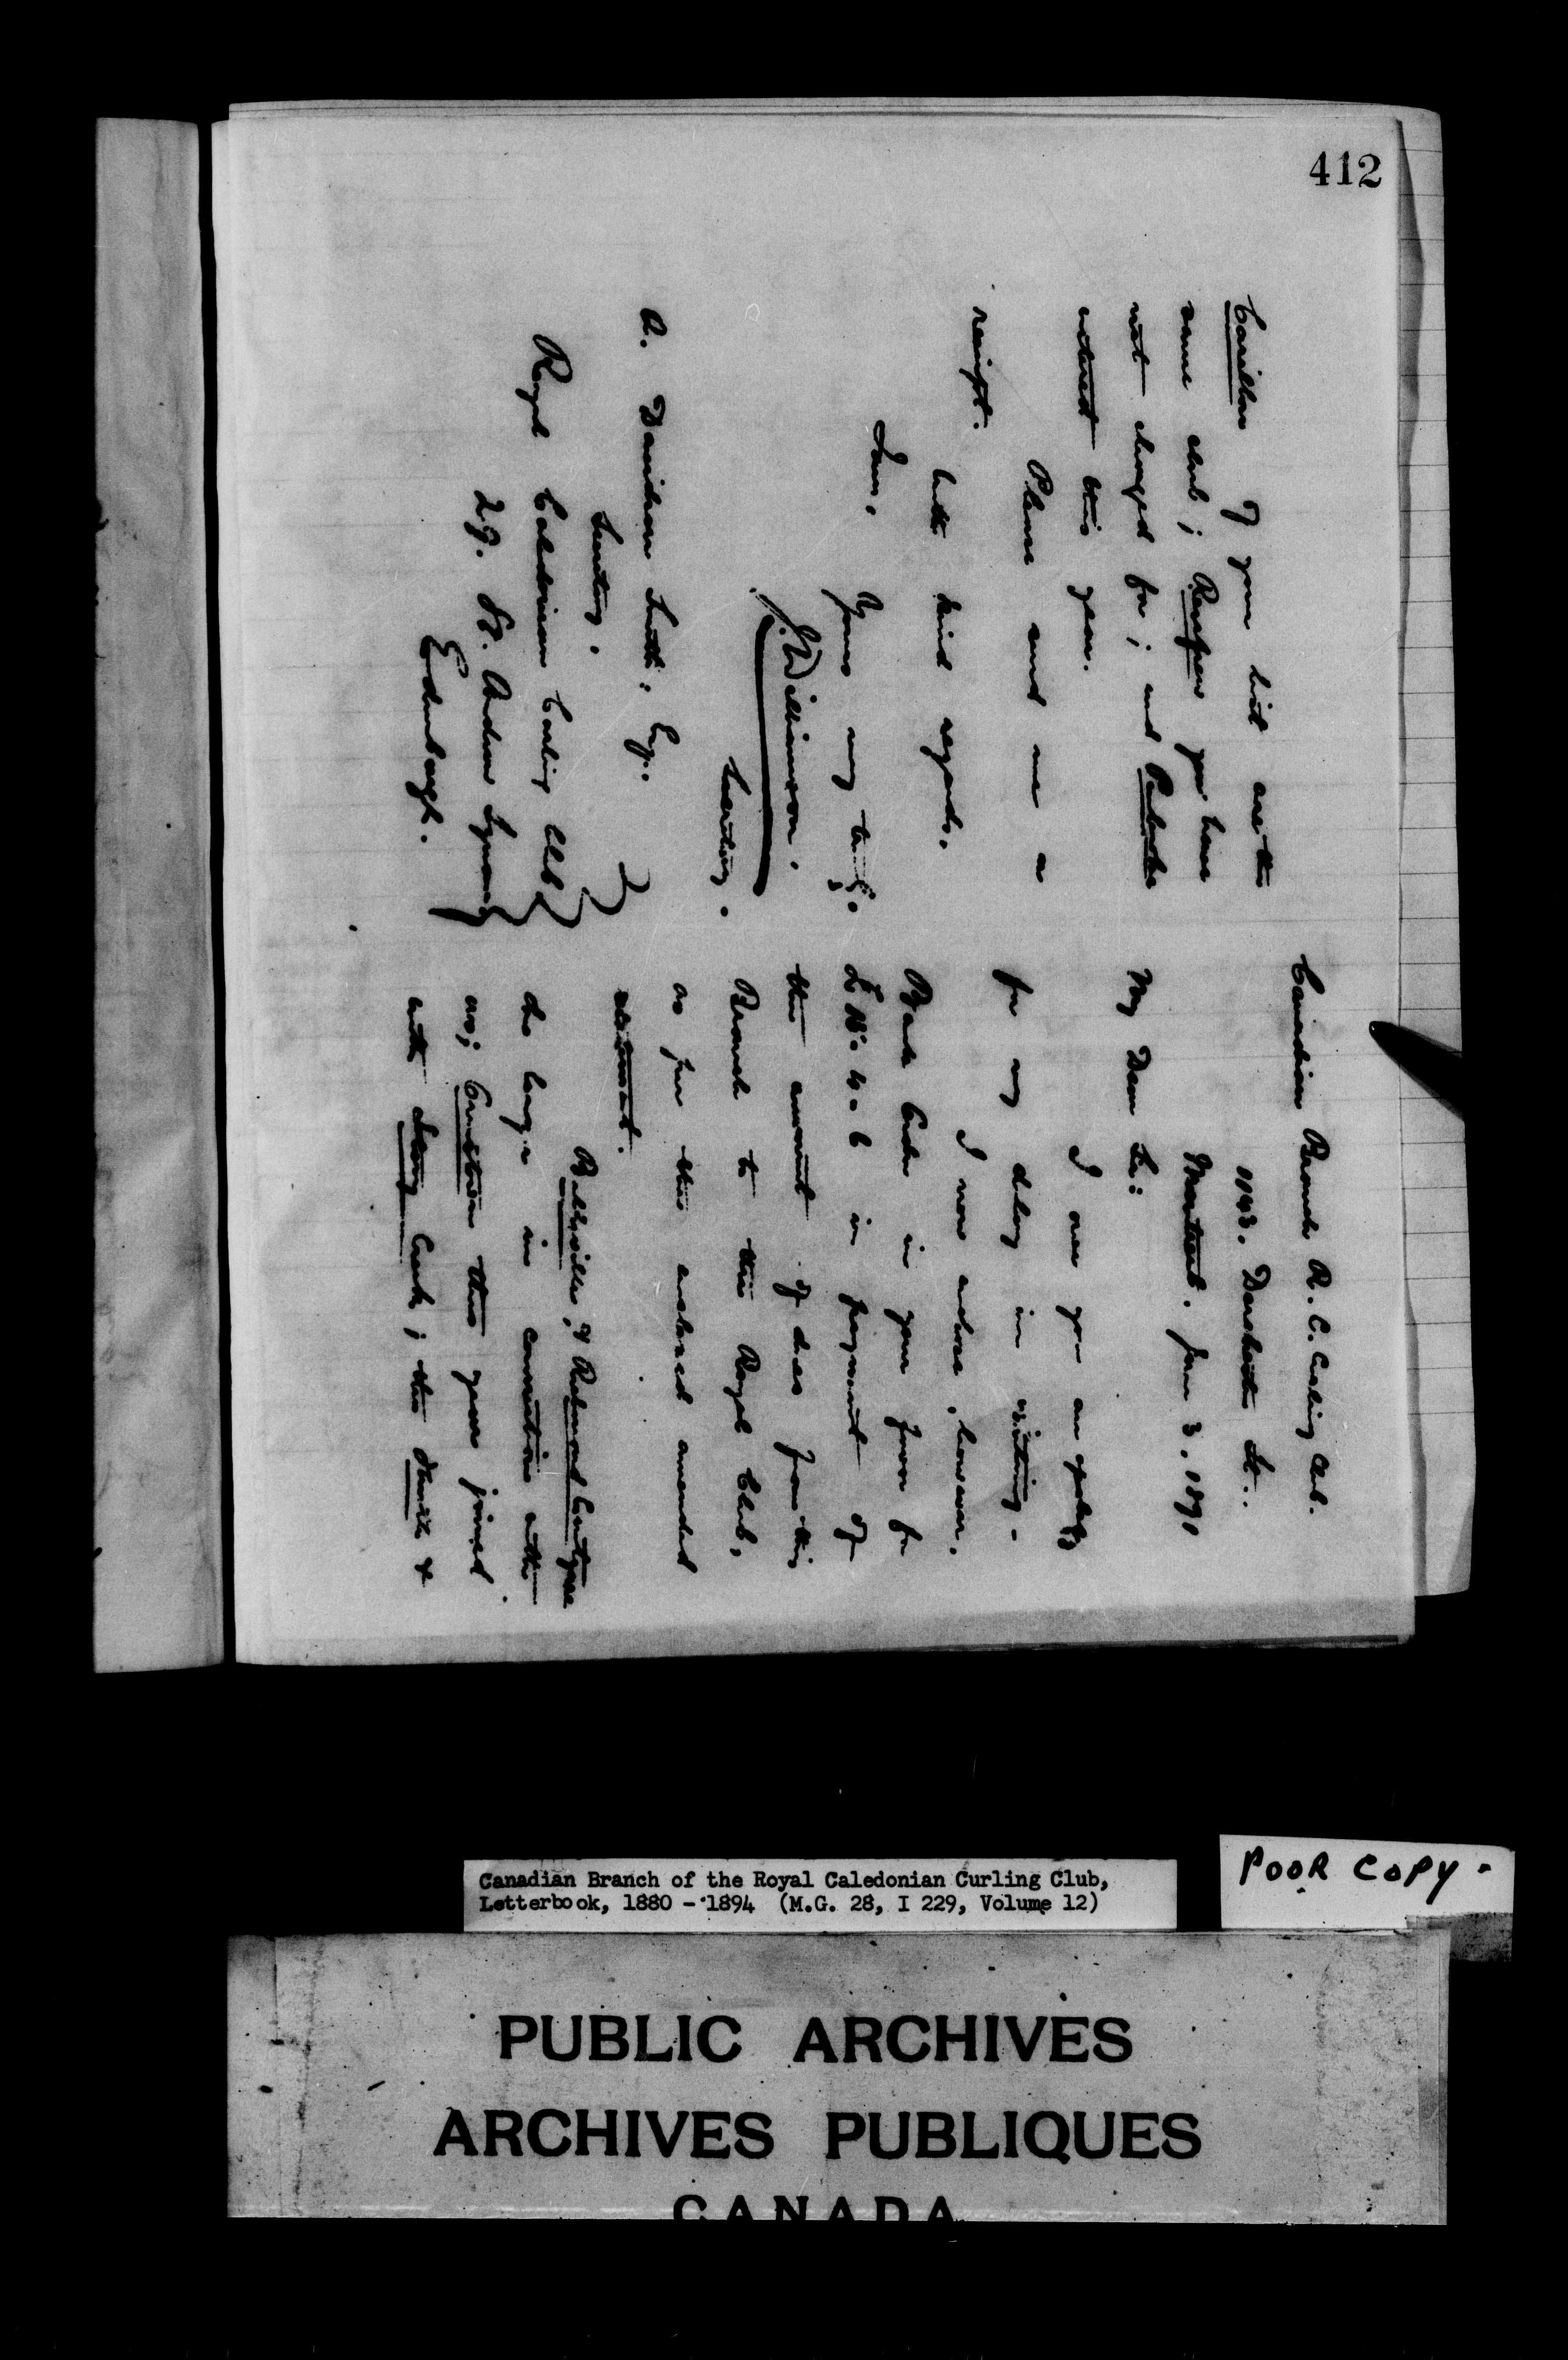 412
Canadian Branch R. C. Curling Club.
1143. Dorchester St..
Montreal. June 3. 1891
My Dear Sir:
I owe you an apology
for my delay in writing.
I now enclose, however,
Bank Order in your favor for
in payment of
the amount of dues from this
Branch to the Royal Club,
as per the enclosed amended
abstract.
Belleville, & Richmond
no longer in connection with
us; this year joined
with the &
Carillon of your list are the
same club; Renfrew you have
not charged for; and Pembroke
entered this year.
Please send me a
receipt.
With kind regards,
I am,
Yours very truly.
J. Williamson.
Secretary.
A. Davidson Smith, Esq..
Secretary.
Royal Caledonian Curling Club
29. St. Andrew Square
Edinburgh.
POOR COPY.
Canadian Branch of the Royal Caledonian Curling Club,
Letterbook, 1880 - 1894 (M.G. 28, I 229, Volume 12)
PUBLIC ARCHIVES
ARCHIVES PUBLIQUES
CANADA